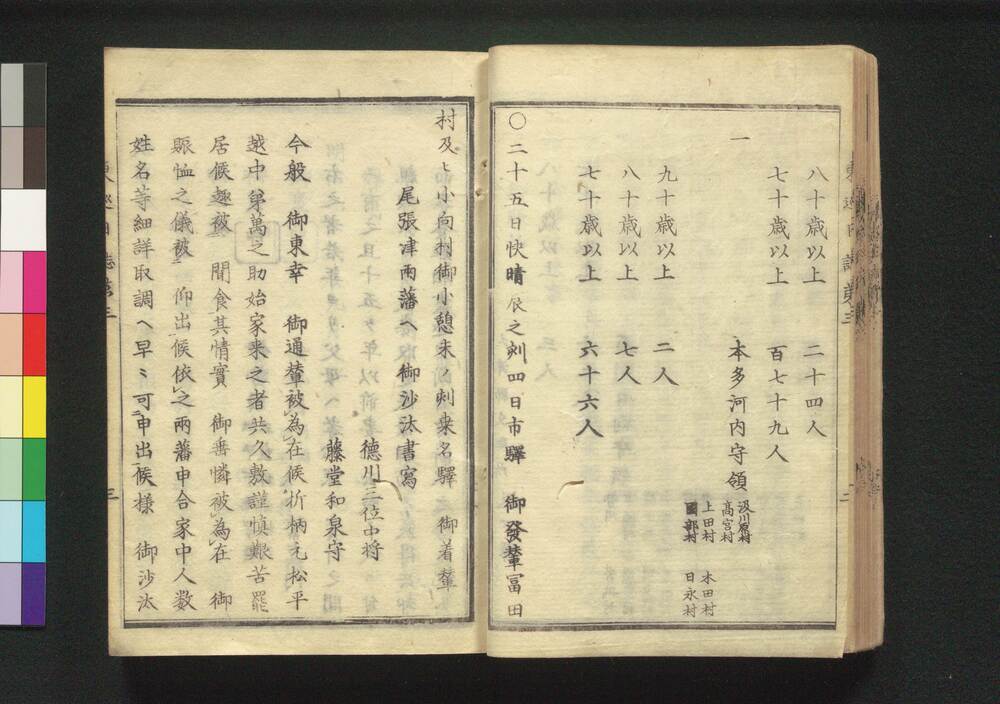 八十歳以上　二十四人
七十歳以上　百七十九人
一　本多河内守領
汲川原村
高宮村
上田村　木田村
國部村　日永村
九十歳以上　二人
八十歳以上　七人
七十歳以上　六十六人
○二十五日快晴辰之刻四日市驛　御發輦冨田
村及ヒ小向村御小憩未ノ刻桒名驛　御着輦
尾張津両藩ヘ御沙汰書寫
徳川三位中将
藤堂和泉守
今般　御東幸　御通輦被為在候折柄元松平
越中弟萬之助始家来之者共久敷謹慎艱苦罷
居候趣被　聞食其情實　御垂憐被為在　御
賑恤之儀被　仰出候依之両藩申合家中人数
姓名等細詳取調ヘ早〻可申出候様　御沙汰
三